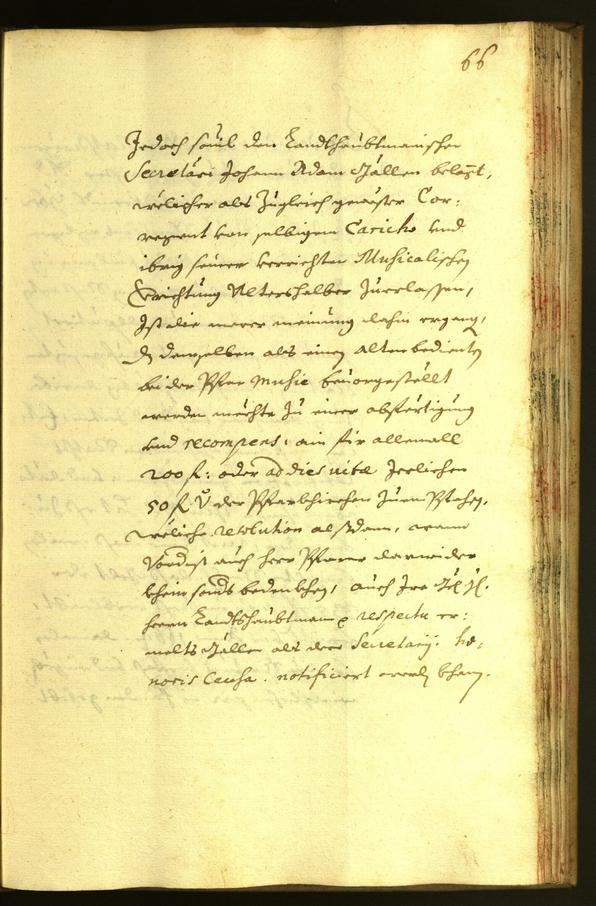 66
Jedoch souil den Landtshaubtmanischen
Secretari Johann Adam Hällen belangt,
welicher als zugleich gewester Cor:
regent von selbigem Caricho vnd
ibrig seiner verrichten Musicalischen
Verrichtung Altershalber zuerlassen,
Ist die merer meinung dahin ergang,
dz demselben als einen alten bedienten
bei der Pfar Music beuorgestellt
werden mechte zu einer abfertigung
vnd recompens, ain fir allemall
200 f: oder ad dies vitæ Jerlichen
50 f v der Pfarkhirchen zuen
weliche resolution alsdann, wann
Vordist auch herr Pfarrer darwider
khein sonds bedenkhen, auch Ire
herrn Landtshaubtmann respectu er:
melts Hällen als dero Secretarij. ho:
noris Causa. notificiert werden khan.